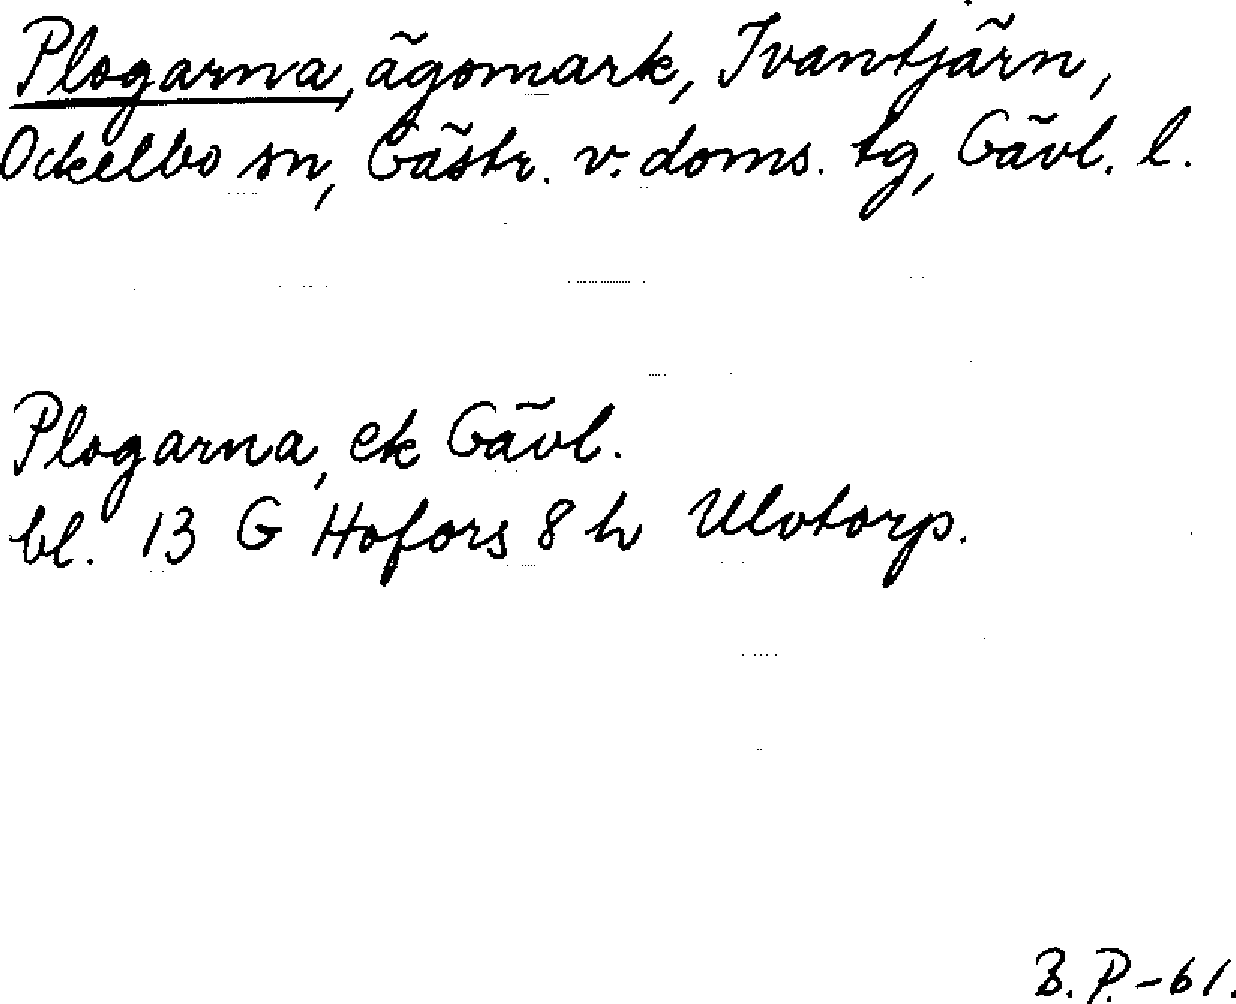 Plogarna, ägomark, Ivantjärn,
Ockelbo sn, Gästr. v. doms. tg, Gävl. l.
Plogarna, ek Gävl.
bl. 13 G Hofors 8 h Ulvtorp.
B. P. -61.